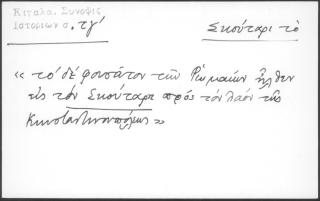 Κιταλα. Συνοψις
Ιστοριων σ. τγ΄
Σκούταρι τὸ
« τὸ δὲ φουσάτον τῶν Ῥωμαίων ἦλθεν
εἰς τὸν Σκούταρι πρὸς τὸν λαὸν τῆς
Κωνσταντινουπόλεως »